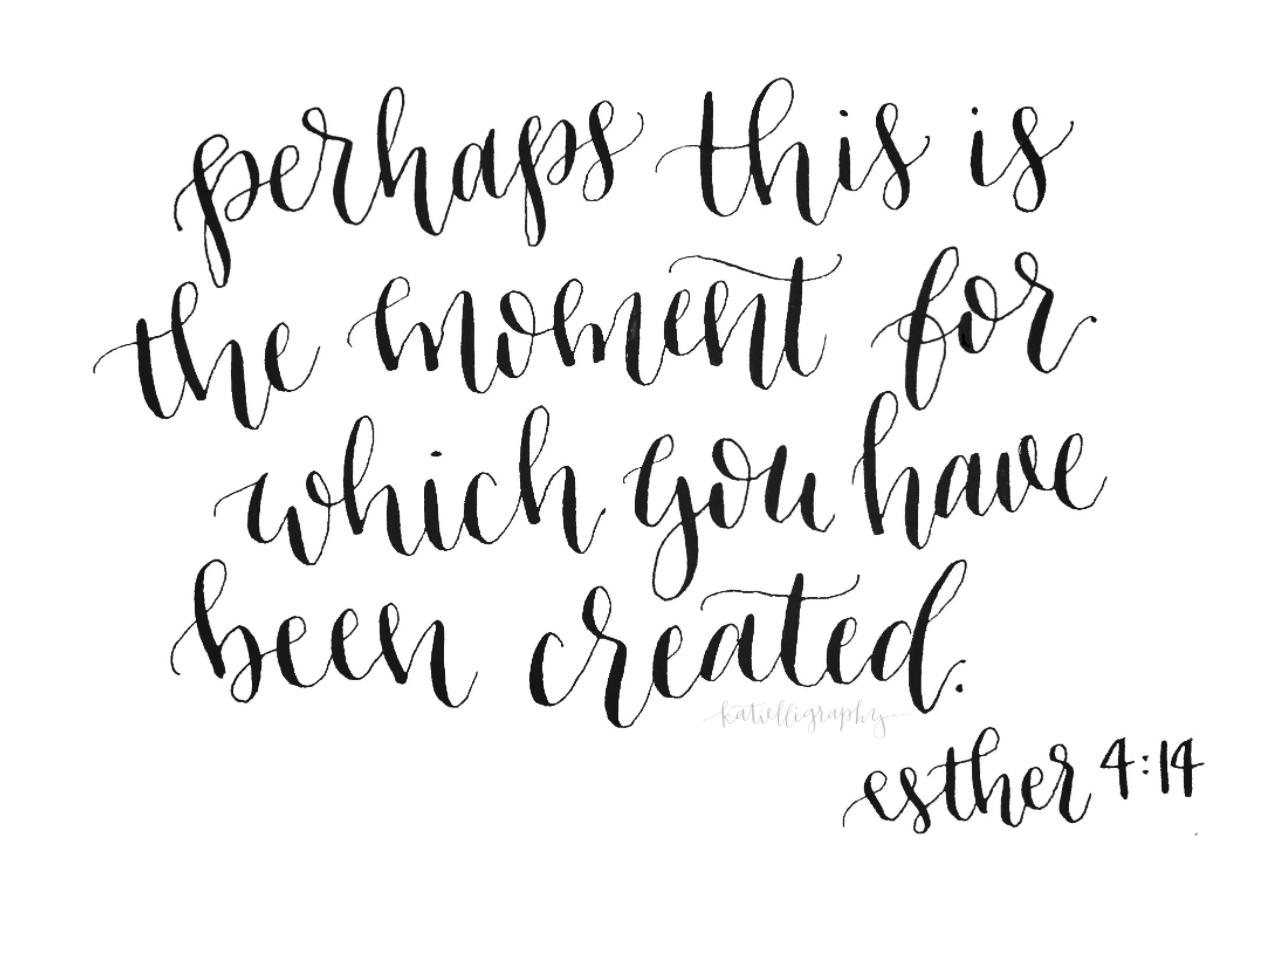 perhaps this is
the moment for
which you have
been created.
katielligraphy
esther 4:14